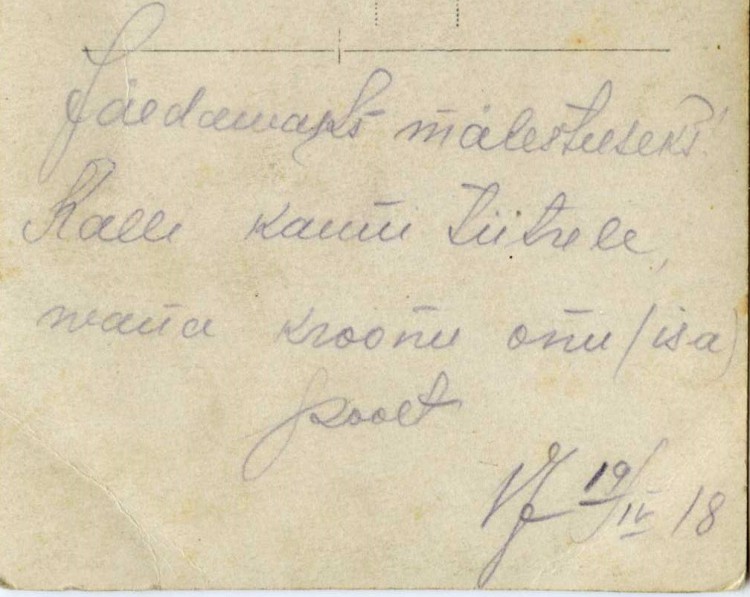 Jäedawaks mälestuseks!
Kalli kauni tütrele,
wana kroonu onu (isa)
poolt
19/IV 18